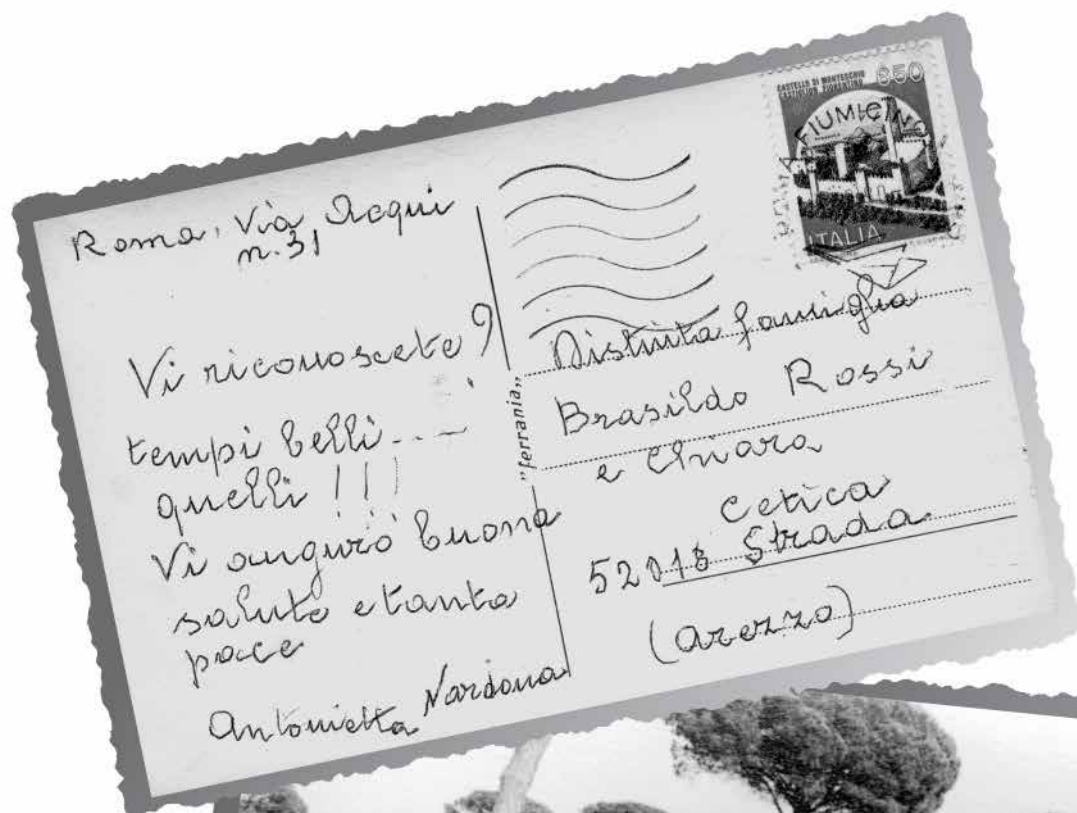 Roma, Via Acqui
n. 31
Vi riconoscete?
tempi belli....
quelli !!!
Vi auguro buona
salute e tanta
pace
Antonietta Nardona
"ferrania"
CASTELLO DI MONTECCHIO
CASTIGLION FIORENTINO
850
FIUMICINO
ITALIA
Distinta famiglia
Brasildo Rossi
e Chiara
Cetica
52018 Strada
(Arezzo)